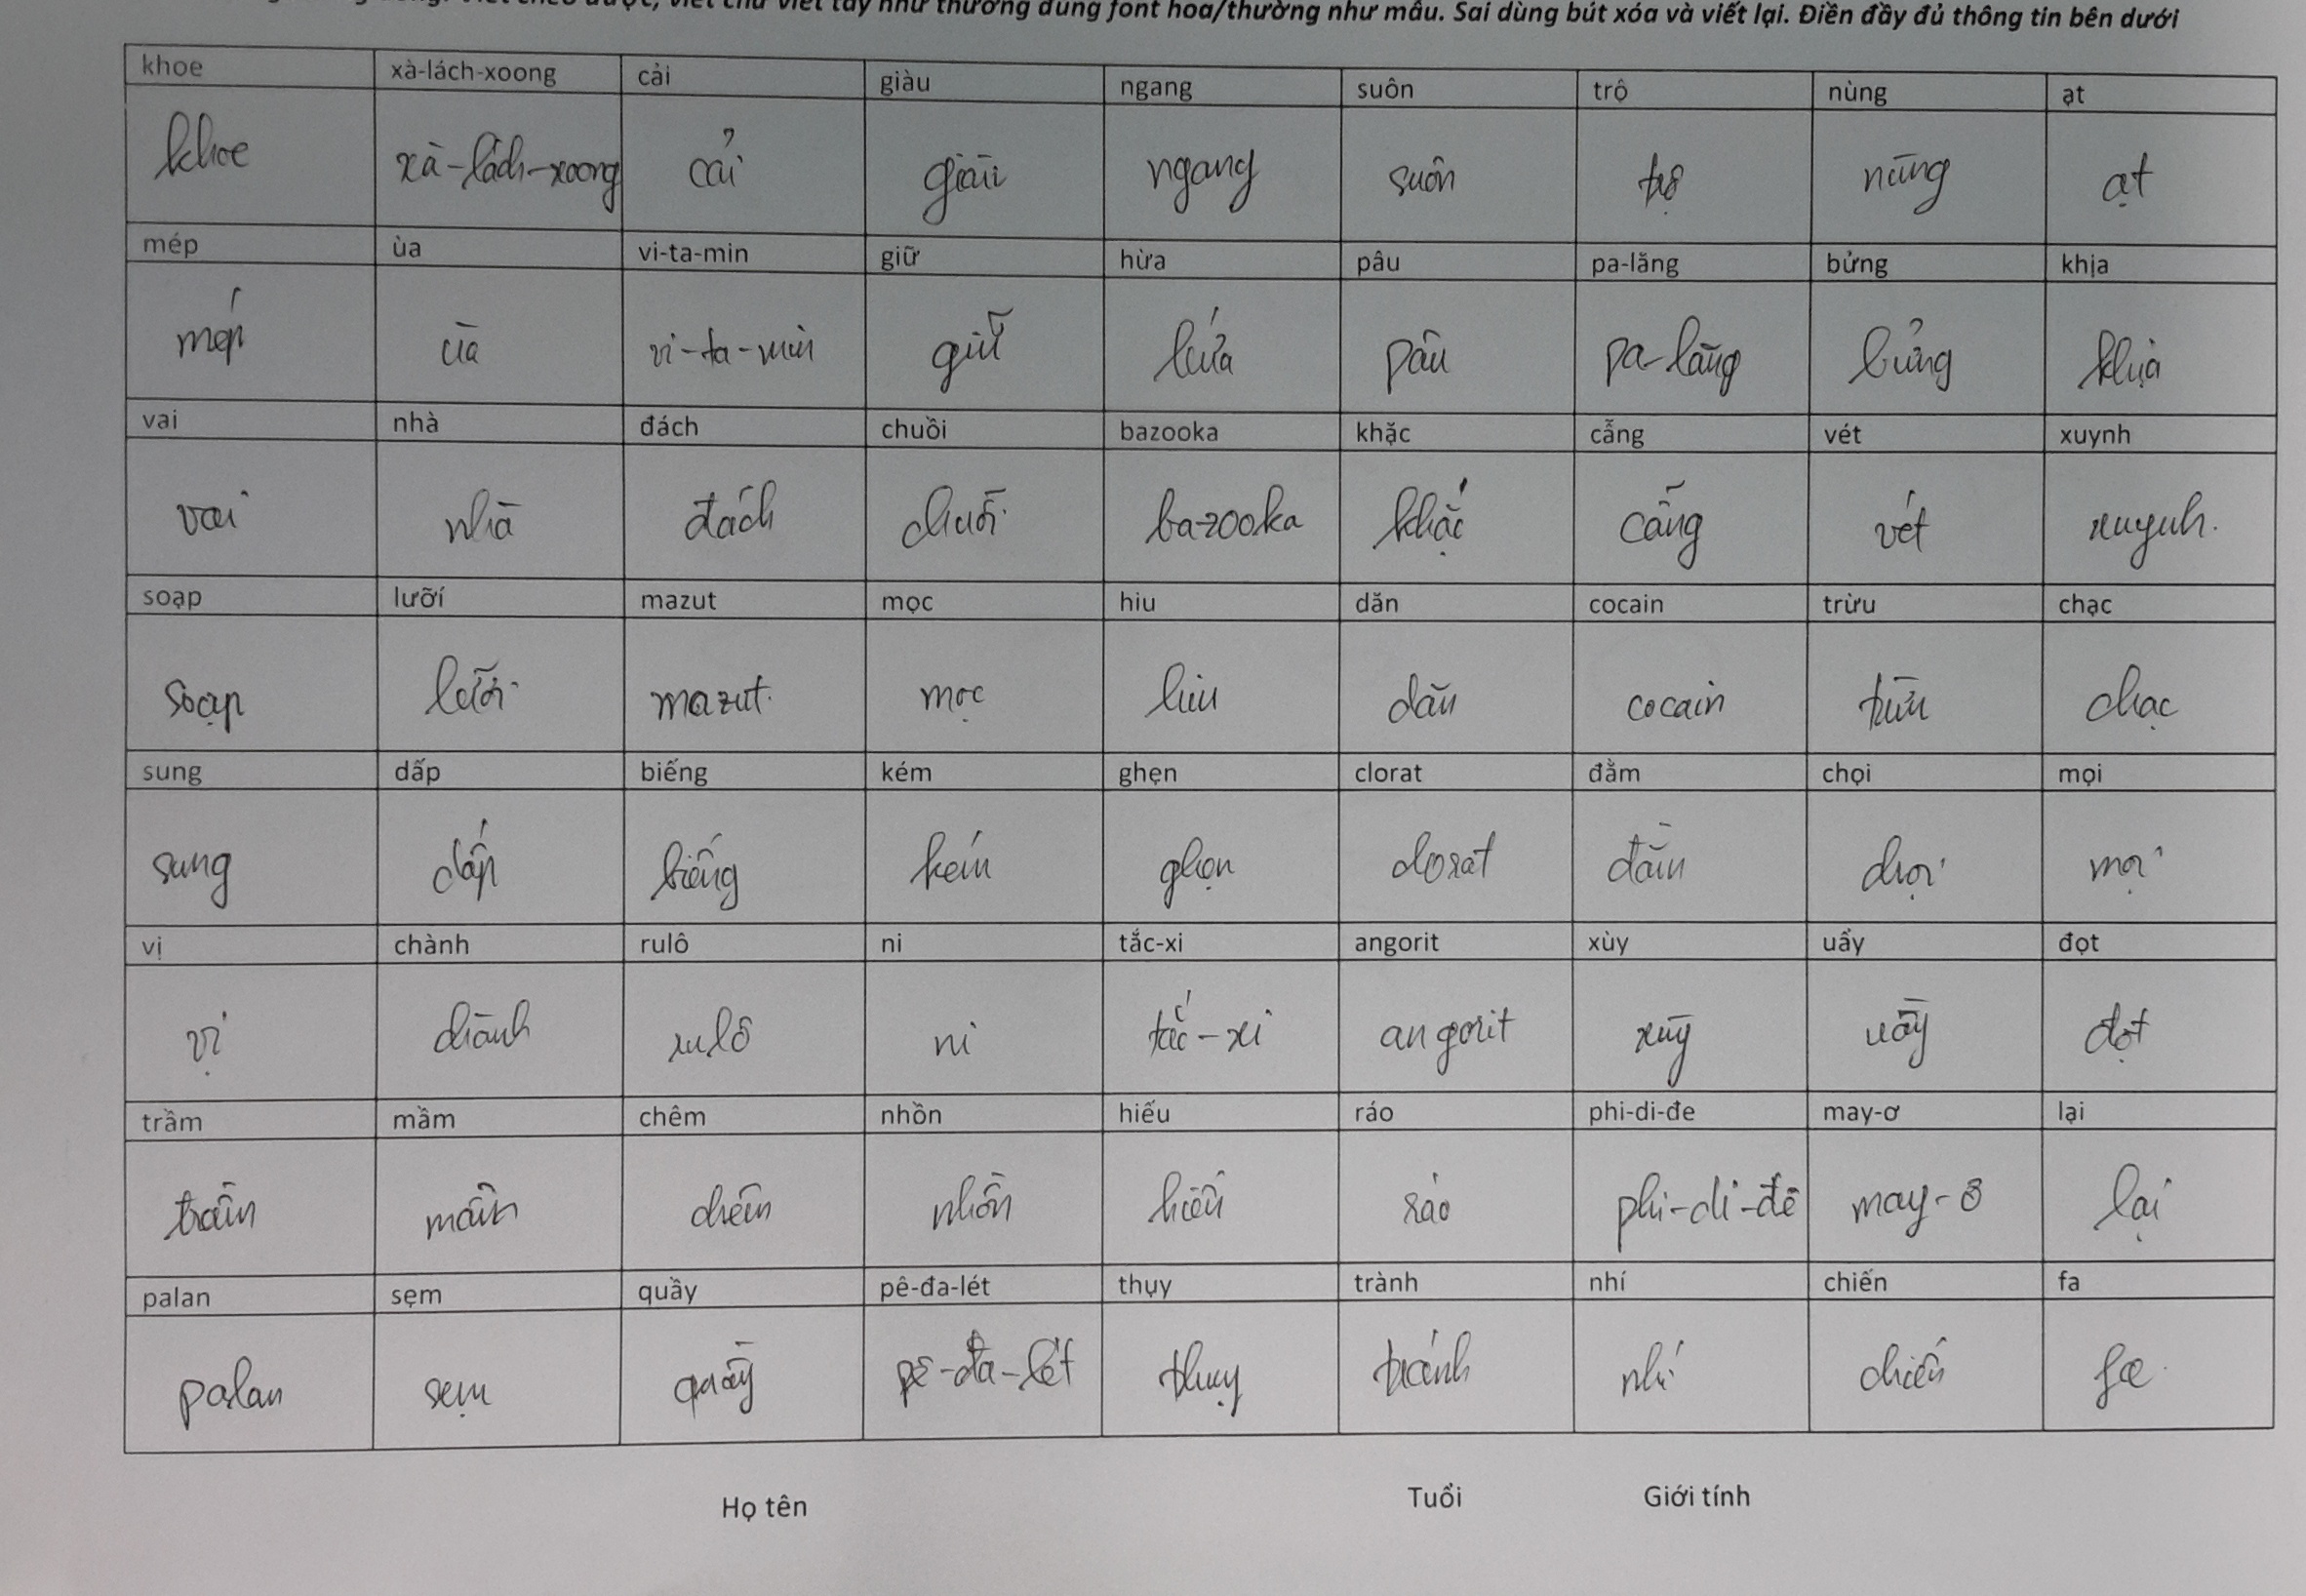 viết chữ viết tay như thường dùng font hoa/thường như mẫu. Sai dùng bút xóa và viết lại. Điền đầy đủ thông tin bên dưới
khoe xà-lách-xoong cải giàu ngang suôn trộ nùng ạt
khoe xà-lách-xoong cải giàu ngang suôn trộ nùng ạt
mép ùa vi-ta-min giữ hừa pâu pa-lăng bửng khịa
mép ùa vi-ta-min giữ hứa pâu pa-lăng bửng khịa
vai nhà đách chuồi bazooka khặc cẫng vét xuynh
vai nhà đách chuồi bazooka khặc cẫng vét xuynh.
soạp lưỡí mazut mọc hiu dăn cocain trừu chạc
soạp lưỡi mazut. mọc hiu dăn cocain trừu chạc
sung dấp biếng kém ghẹn clorat đằm chọi mọi
sung dấp biếng kém ghẹn clorat đằm chọi mọi
vị chành rulô ni tắc-xi angorit xùy uẩy đọt
vị chành rulô ni tắc-xi angorit xùy uầy đọt
trầm mầm chêm nhồn hiếu ráo phi-di-đe may-ơ lại
trầm mầm chêm nhồn hiếu ráo phi-di-đê may-ô lại
palan sẹm quầy pê-đa-lét thụy trành nhí chiến fa
palan sẹm quầy pê-đa-lét thụy tránh nhí chiến fa
Họ tên Tuổi Giới tính